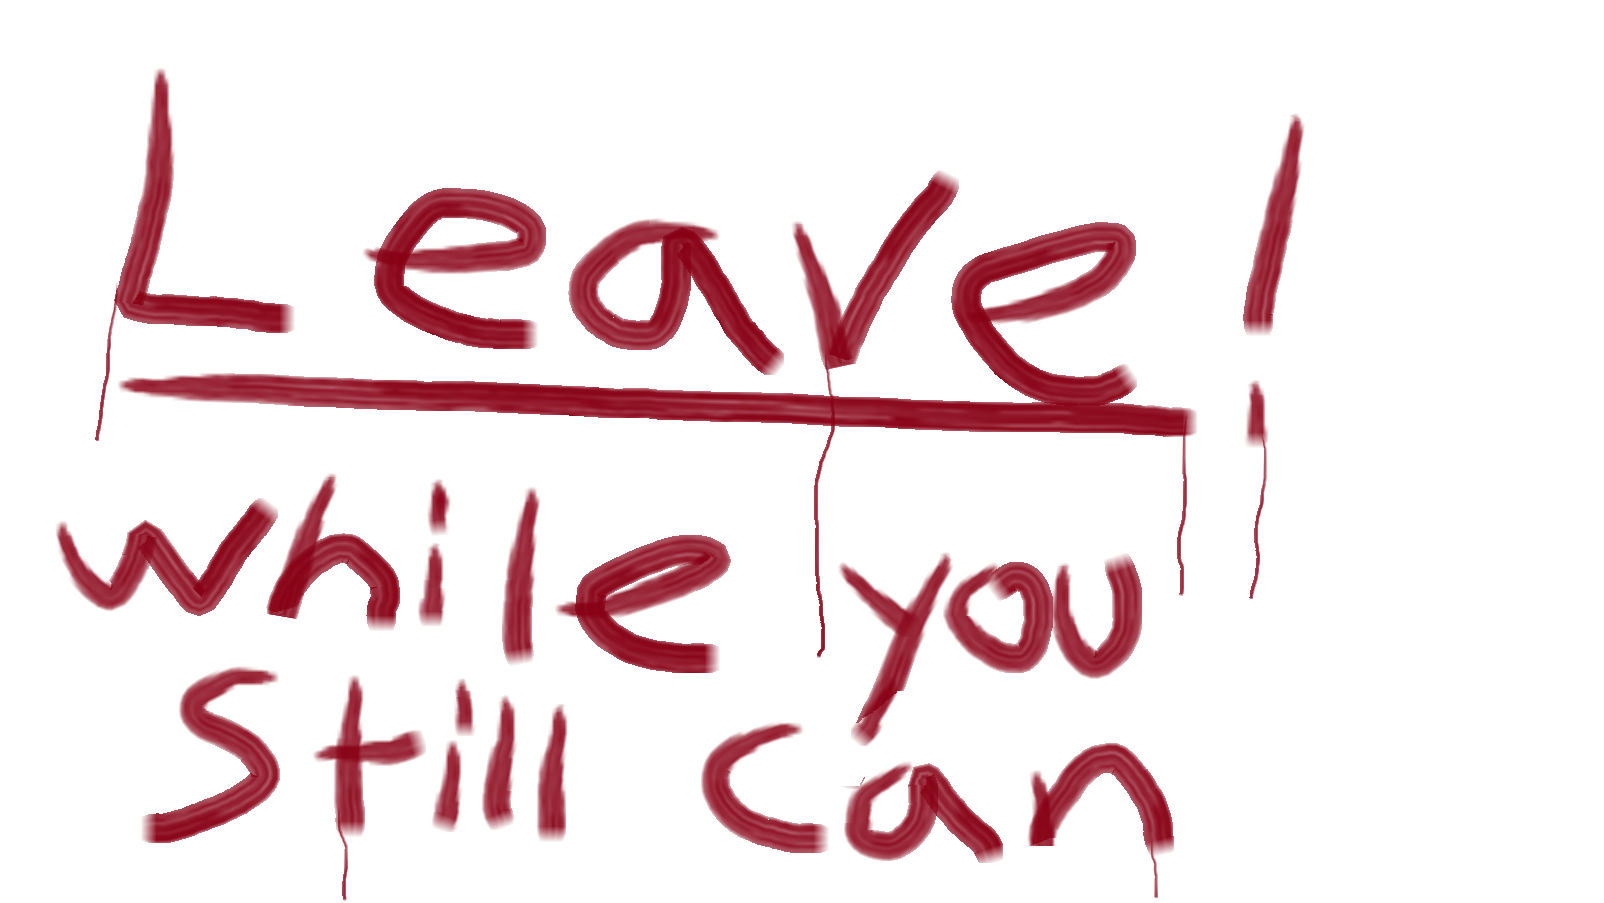 Leave!
while you
Still can